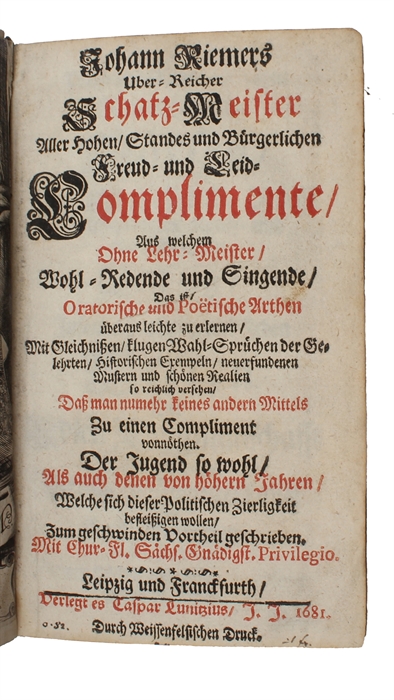 Johann Riemers
Uber-Reicher
Schatz-Meister
Aller Hohen/ Standes und Bürgerlichen
Freud- und Leid-
Complimente/
Aus welchem
Ohne Lehr-Meister/
Wohl-Redende und Singende/
Das ist/
Oratorische und Poëtische Arthen
überaus leichte zu erlernen/
Mit Gleichnißen/ klugen Wahl-Sprüchen der Ge-
lehrten/ Historischen Exempeln/ neuerfundenen
Mustern und schönen Realien
so reichlich versehen/
Daß man numehr keines andern Mittels
Zu einen Compliment
vonnöthen.
Der Jugend so wohl/
Als auch denen von höhern Jahren/
Welche sich dieser Politischen Zierligkeit
befleißigen wollen/
Zum geschwinden Vortheil geschrieben.
Mit Chur-Fl. Sächs. Gnädigst. Privilegio.
Leipzig und Franckfurth/
Verlegt es Caspar Lunitzius/ J. J. 1681.
Durch Weissenfelsischen Druck.